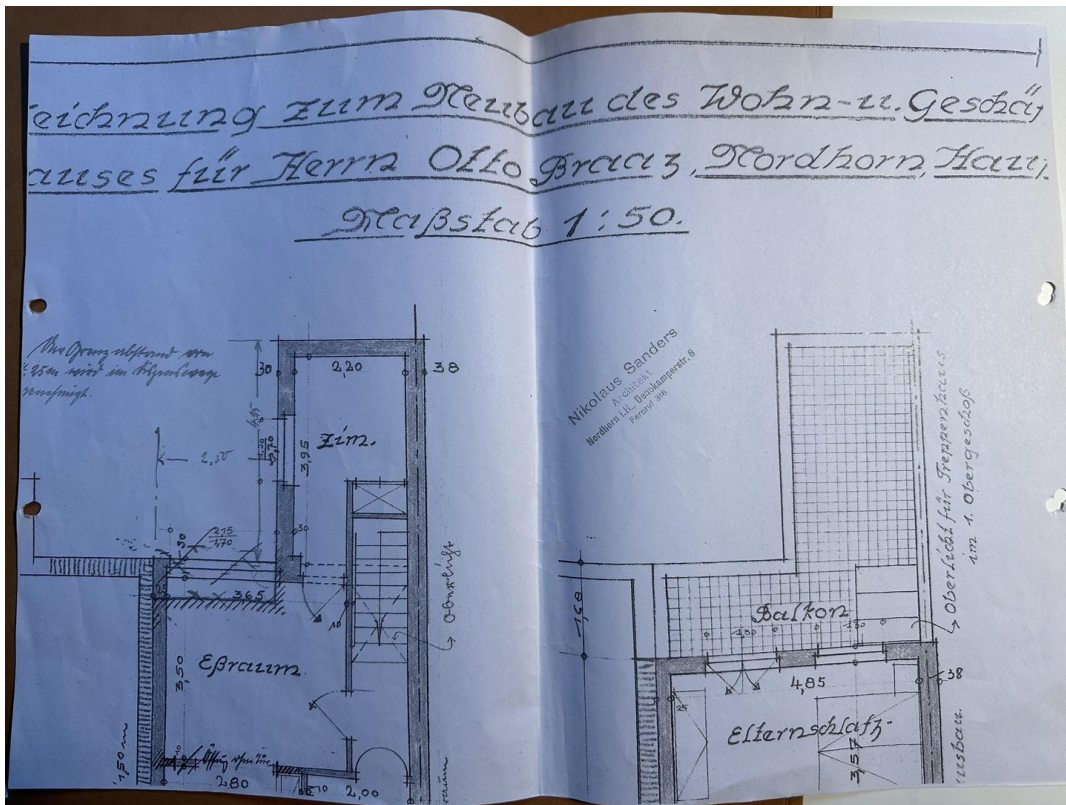 eichnung zum Neubau des Wohn-u. Geschä
auses für Herrn Otto Braaz, Nordhorn, Haup
Maßstab 1:50.
Der Grenzabstand von
1.25m wird im
genehmigt.
30
2,20
38
Zim.
3,95
2,50
30
215
170
30
365
Eßraum.
3,50
10
→ Oberlicht
1,50 m
Öffng ohne Tür
2,80
10
2,00
Nikolaus Sanders
Architekt
Nordhorn i.H., Denekamperstr. 8
Fernruf 316
Oberlicht für Treppenhaus
im 1. Obergeschoß
Balkon
1,50
1,50
4,85
38
25
Elternschlafz.
3,57
usbau.